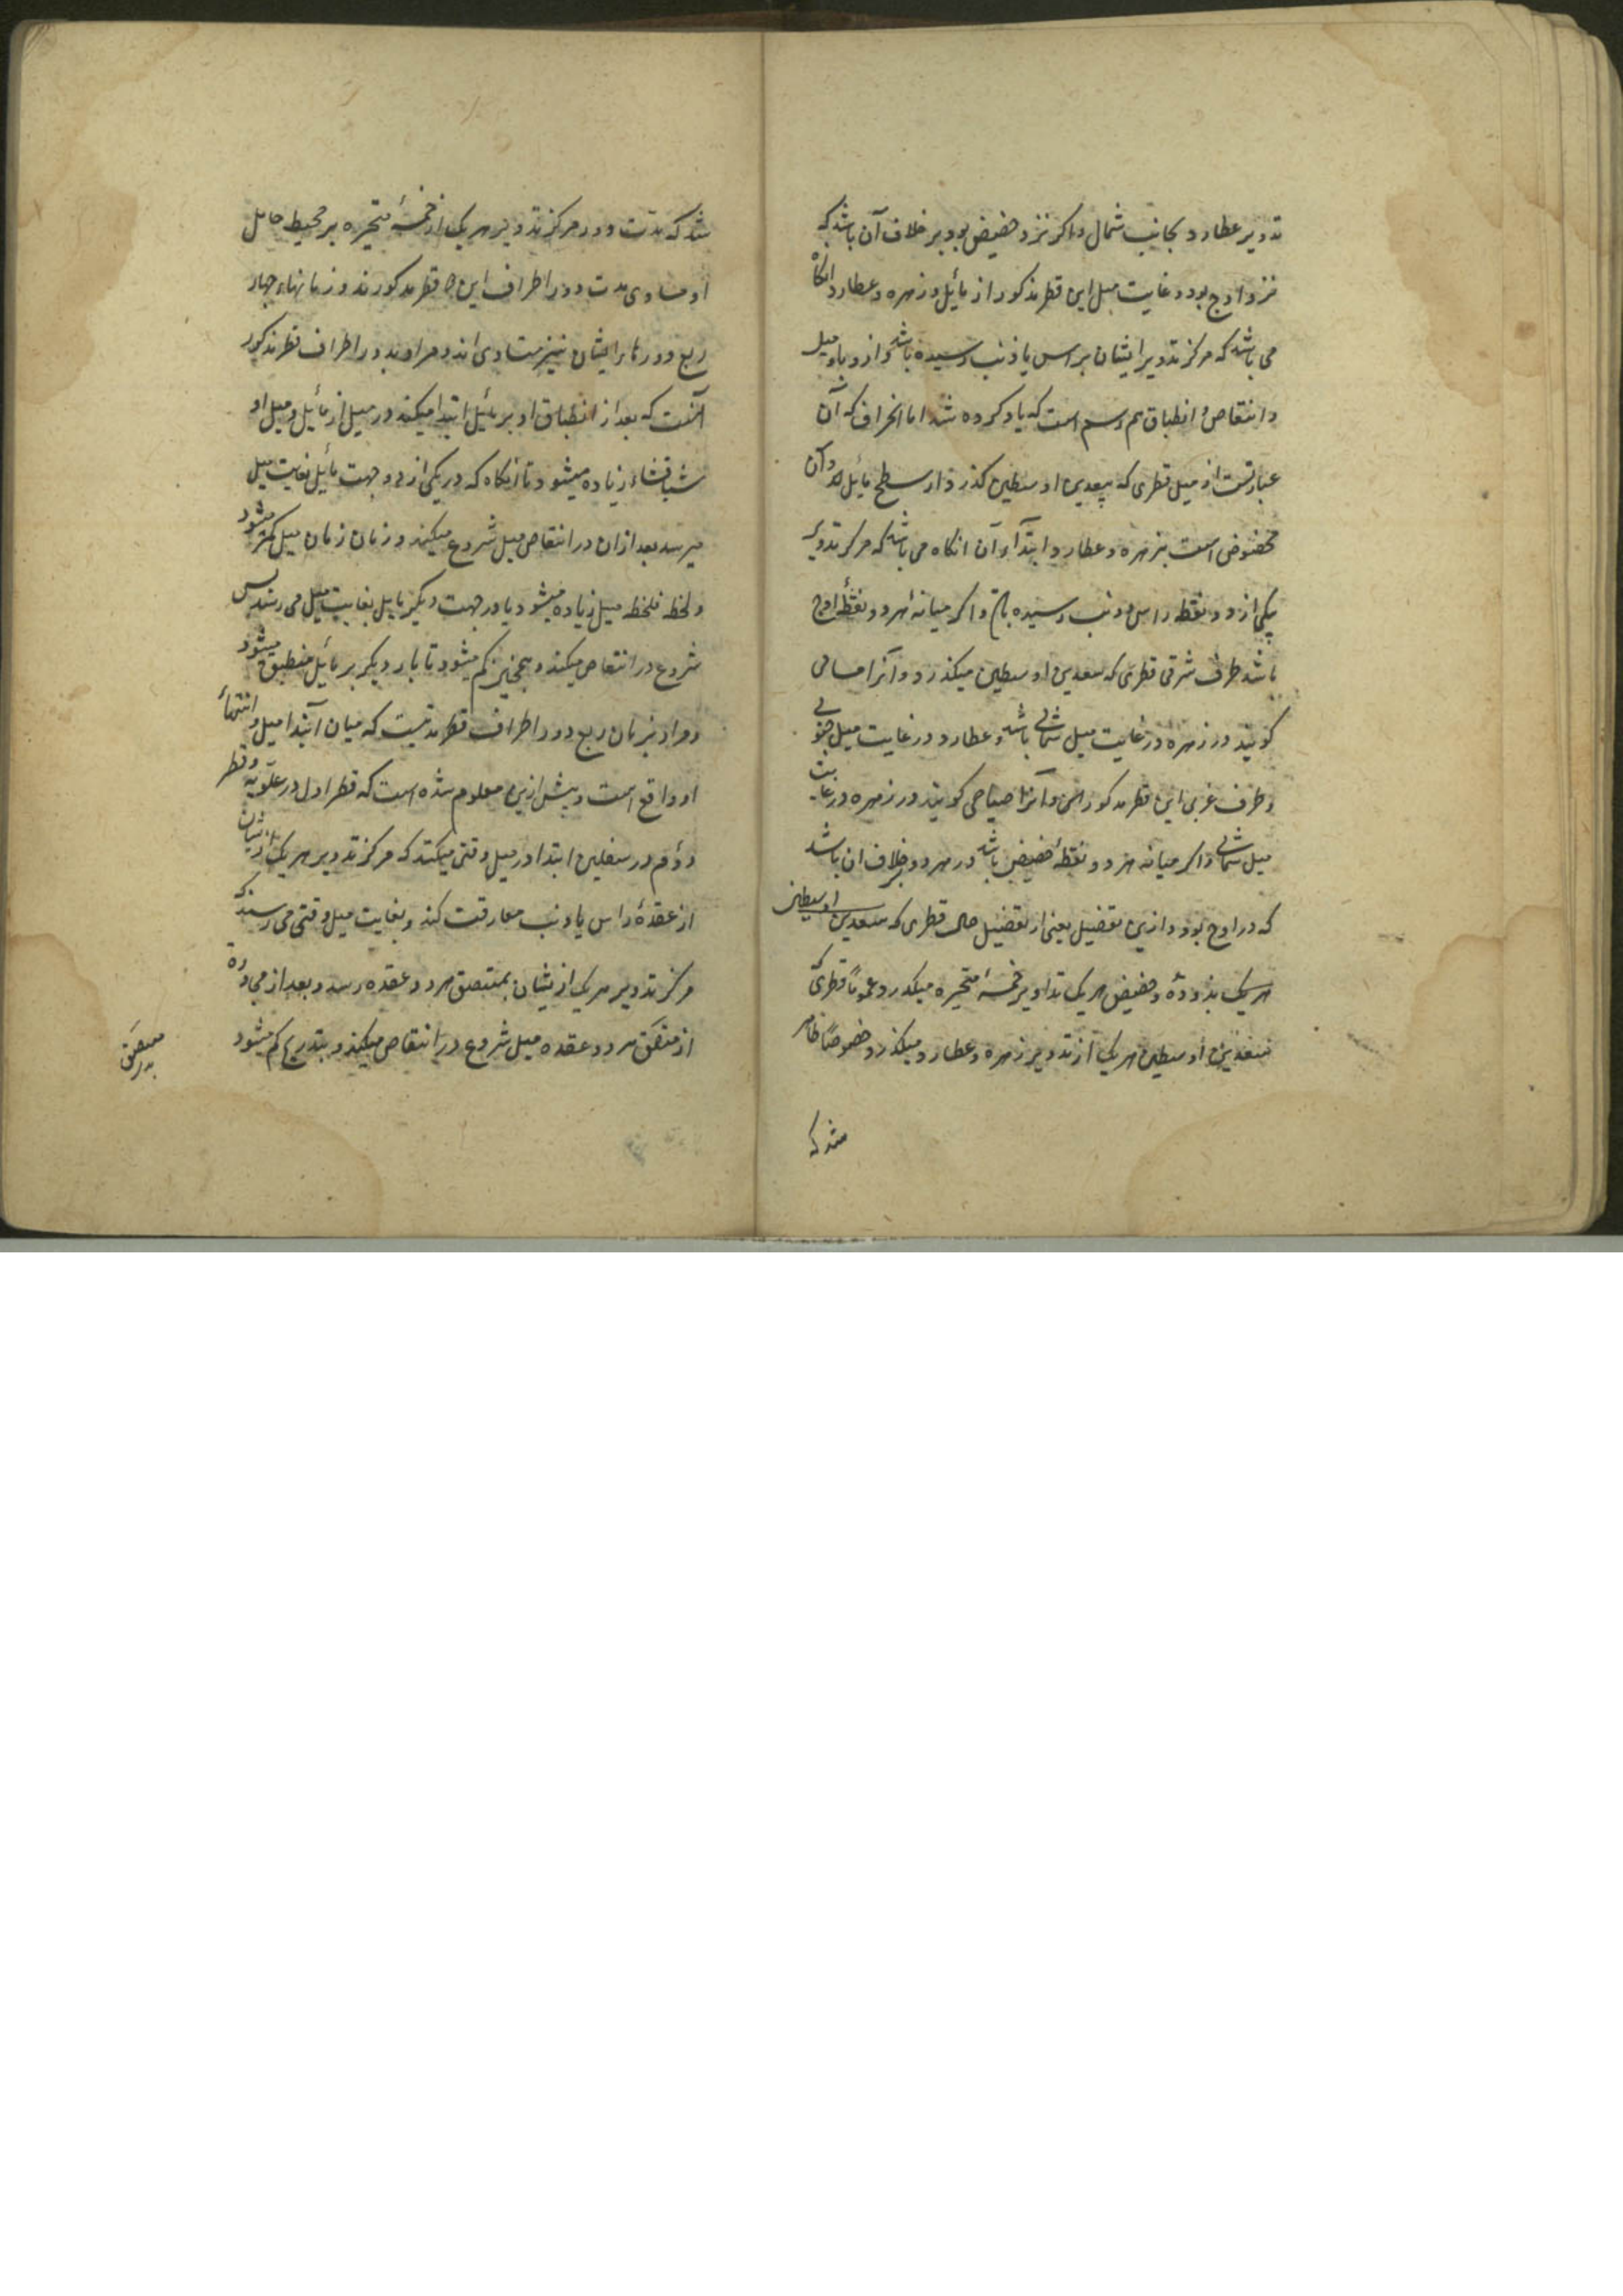 تدویر عطارد بجانب شمال و اکر نزد حضیض بود بر خلاف آن باشد که
نزد اوج بود و غایت میل این قطر مذکور از مائل در زهره و عطارد انکاه
می باشد که مرکز تدویر ایشان براس یا ذنب رسیده باشد و ازدیاد میل
و انتقاص و انطباق هم برسم است که یاد کرده شد اما انحراف که آن
عبارتست از میل قطری که ببعدین اوسطین کذرد از سطح مائل و آن
مخصوص است بزهره و عطارد و ابتداء آن انکاه می باشد که مرکز تدویر
بیکی از دو نقطه راس و ذنب رسیده و اکر میانه هر دو نقطهٔ اوج
باشد طرف شرقی قطری که ببعدین اوسطین میکذرد و آنرا مسائی
کویند در زهره در غایت میل شمالی باشد و عطارد در غایت میل جنوبی
و طرف غربی این قطر مذکور و آنرا صباحی کویند در زهره در غایت
میل شمالی و اکر میانه هر دو نقطهٔ حضیض باشد در هر دو بخلاف ان باشد
که در اوج بود و ازین تفصیل یعنی از تفصیل حال قطری که ببعدین اوسطین
هر یک بذروه و حضیض هر یک تداویر خمسهٔ متحیره میکذرد عموماً و قطری که
ببعدین اوسطین هر یک از تدویر زهره و عطارد میکذرد خصوصاً ظاهر
شد که
شد که مدت دور مرکز تدویر هر یک از خمسهٔ متحیره بر محیط حامل
او مساوی مدت دور اطراف این قطر مذکورند و زمانهاء چهار
ربع دورها ایشان نیز متساوی اند و مراد بدور اطراف قطر مذکور
آنست که بعد از انطباق او بر مائل ابتدا میکند در میل از مائل و میل او
شیافشاء زیاده میشود تا انکاه که در یکی از دو جهت مائل بغایت میل
میرسد بعد ازان در انتقاص میل شروع میکند و زمان زمان میل کمتر میشود
و لحظه فلحظه میل زیاده میشود یا در جهت دیکر مایل بغایت میل می رسد پس
شروع در انتقاص میکند و همچنین کم میشود تا بار دیکر بر مائل منطبق میشود
و مراد بزمان ربع دور اطراف قطر مدتیست که میان ابتدا میل و انتهاء
او واقع است و پیش ازین معلوم شده است که قطر اول در علویه و قطر
دوم در سفلین ابتدا در میل وقتی میکند که مرکز تدویر هر یک ازیشان
از عقدهٔ راس یا ذنب مفارقت کند و بغایت میل وقتی می رسد که
مرکز تدویر هر یک ازیشان بمنتصف هر دو عقده رسد و بعد از مجاوزه
از منتصف هر دو عقده میل شروع در انتقاص میکند و بتدریج کم میشود